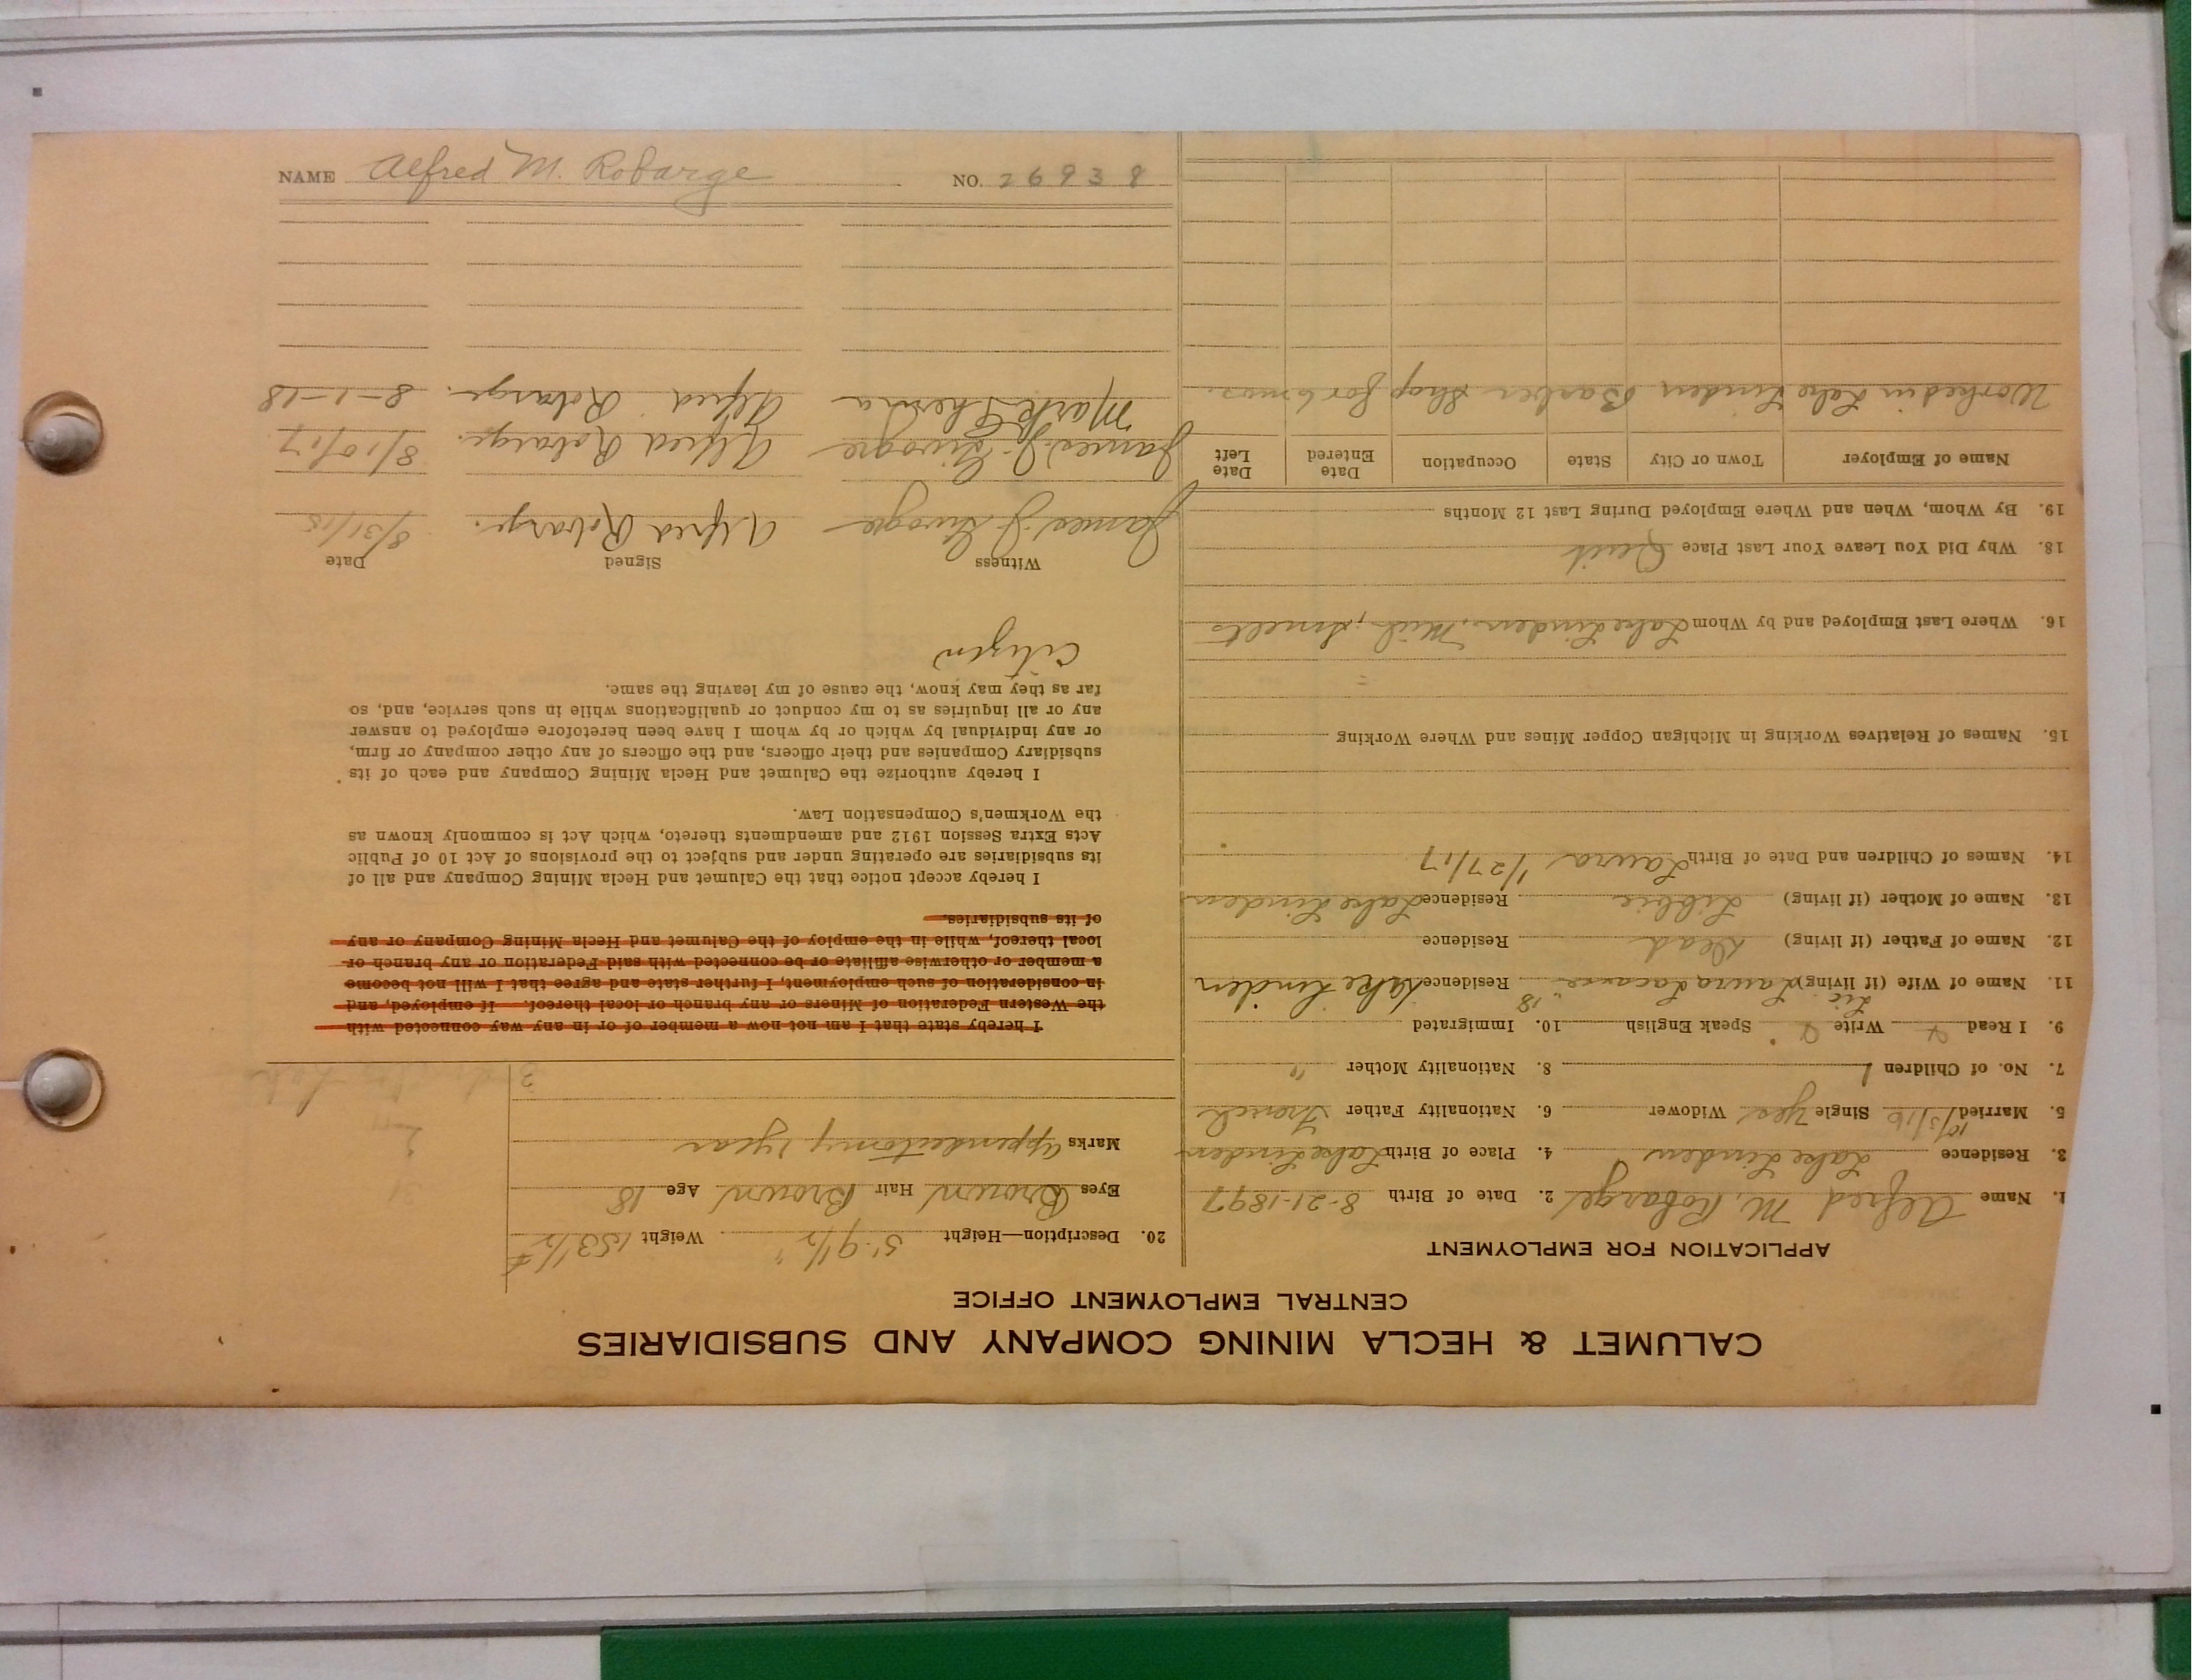 CALUMET & HECLA MINING COMPANY AND SUBSIDIARIES
CENTRAL EMPLOYMENT OFFICE
APPLICATION FOR EMPLOYMENT
1. Name Alfred M. Robarge 2. Date of Birth 8-21-1897
3. Residence Lake Linden 4. Place of Birth Lake Linden
5. Married 10/3/16 Single yes Widower 6. Nationality Father French
7. No. of Children 1 8. Nationality Mother "
9. I Read Write Speak English 10. Immigrated
11. Name of Wife (if living) Laura Residence Lake Linden
12. Name of Father (if living) Dead Residence
13. Name of Mother (if living) Libbie Residence Lake Linden
14. Names of Children and Date of Birth Laura 1/27/17
15. Names of Relatives Working in Michigan Copper Mines and Where Working
16. Where Last Employed and by Whom Lake Linden, Mich,
18. Why Did You Leave Your Last Place Quit
19. By Whom, When and Where Employed During Last 12 Months
Name of Employer Town or City State Occupation Date Entered Date Left
Worked in Lake Linden Barber Shop for 6 mos.
20. Description—Height 5'-9 1/2" Weight 153 1/2 #
Eyes Brown Hair Brown Age 18
Marks appendectomy 1 year
I hereby state that I am not now a member of or in any way connected with
the Western Federation of Miners or any branch or local thereof. If employed, and
in consideration of such employment, I further state and agree that I will not become
a member or otherwise affiliate or be connected with said Federation or any branch or
local thereof, while in the employ of the Calumet and Hecla Mining Company or any
of its subsidiaries.
I hereby accept notice that the Calumet and Hecla Mining Company and all of
its subsidiaries are operating under and subject to the provisions of Act 10 of Public
Acts Extra Session 1912 and amendments thereto, which Act is commonly known as
the Workmen's Compensation Law.
I hereby authorize the Calumet and Hecla Mining Company and each of its
subsidiary Companies and their officers, and the officers of any other company or firm,
or any individual by which or by whom I have been heretofore employed to answer
any or all inquiries as to my conduct or qualifications while in such service, and, so
far as they may know, the cause of my leaving the same.
Citizen
Witness Signed Date
James J. Alfred Robarge. 8/31/15
James J. Alfred Robarge. 8/10/17
Mark Alfred Robarge. 8-1-18
NAME Alfred M. Robarge NO. 26938